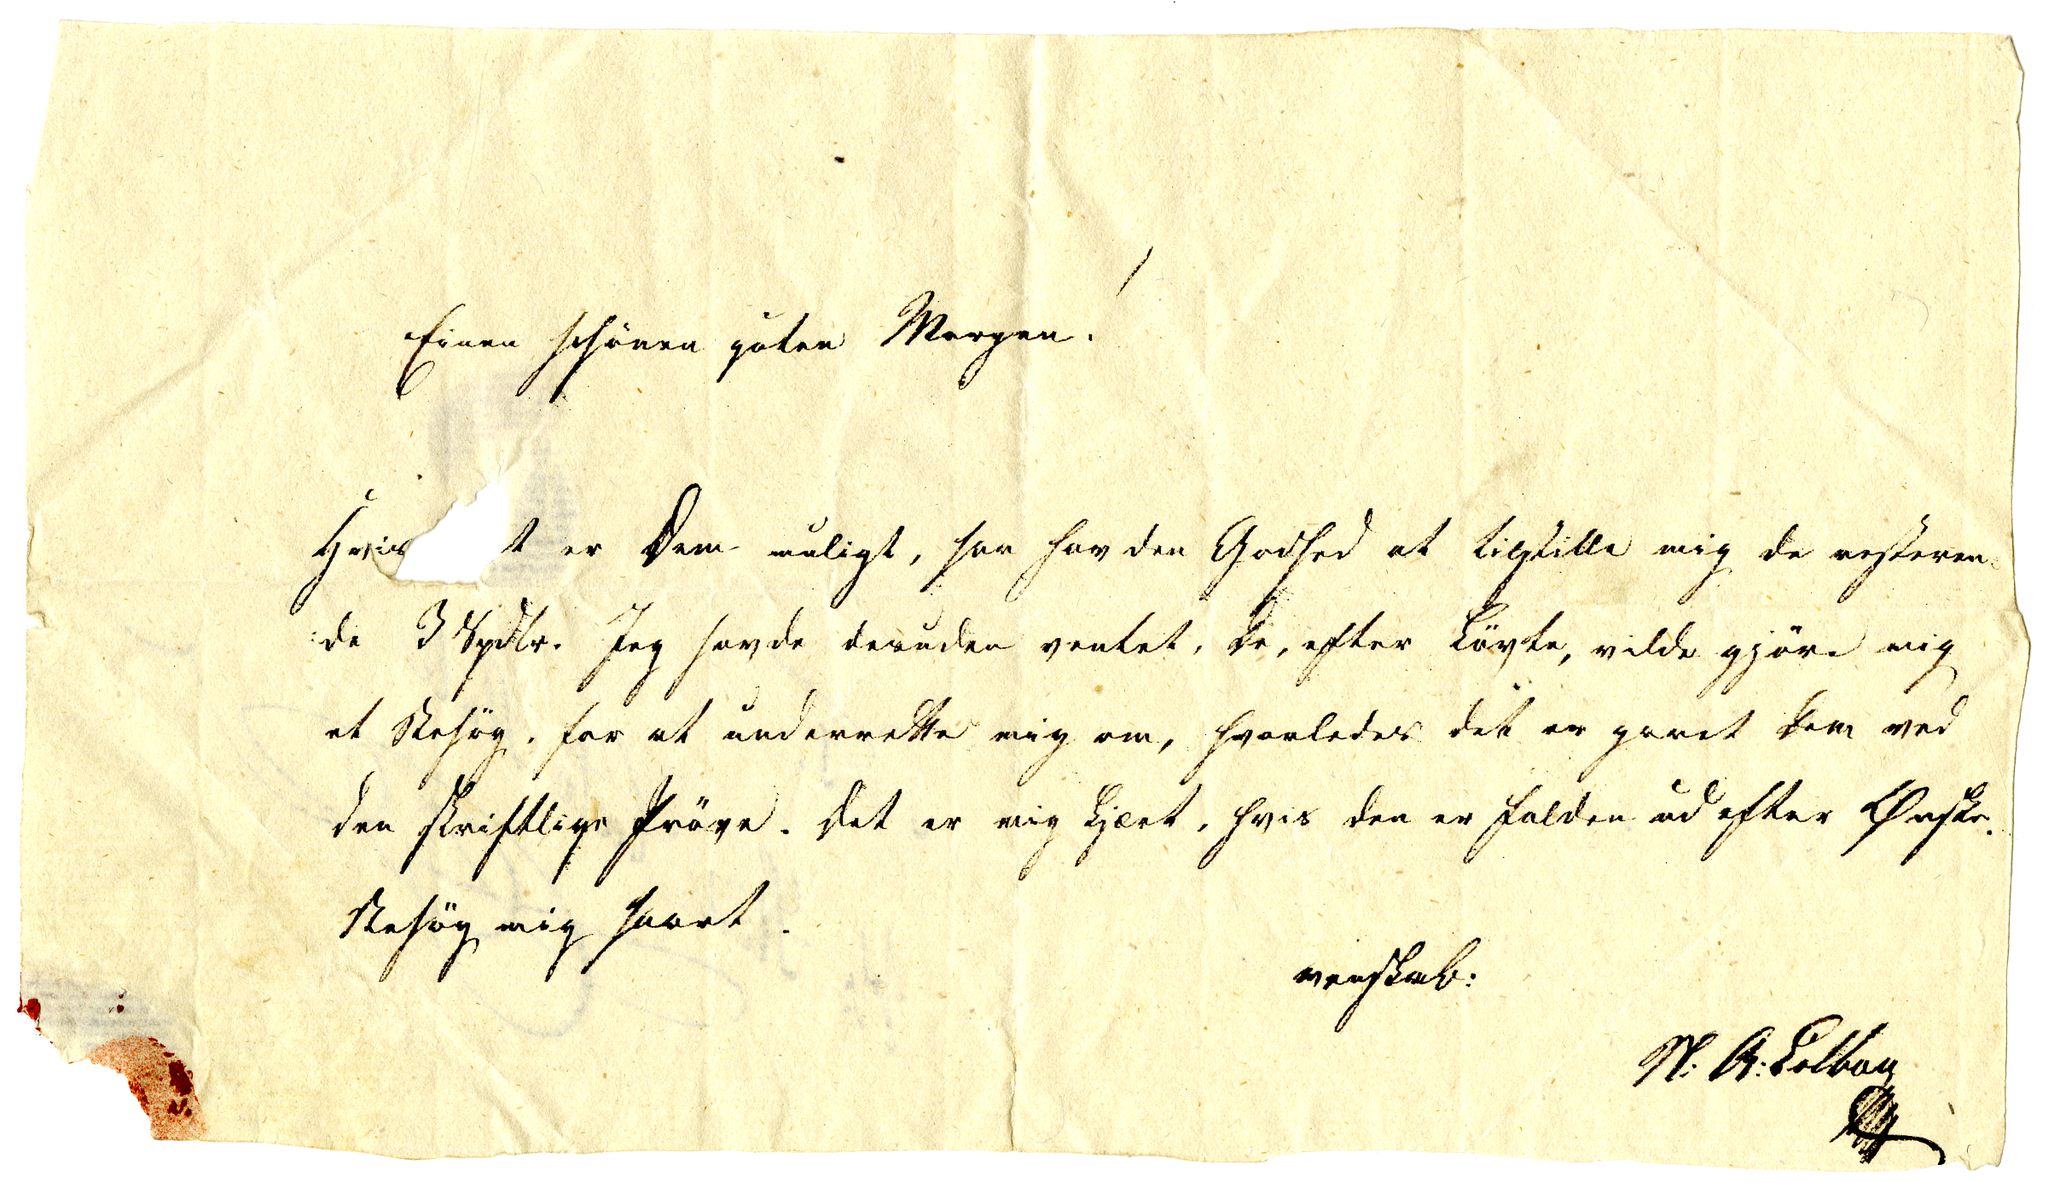 Einen schönen guten Morgen!
Hvis t er Dem muligt, saa hav den Godhed at tilstille mig de resteren-
de 3 Spdlr. Jeg havde desuden ventet, De, efter Lövte, vilde gjöre mig
et Besög, for at underrette mig om, hvorledes det er gaaet Dem ved
den skriftlige Pröve. Det er mig kjært, hvis den er falden ud efter Ønske.
Besög mig snart.
venskab: